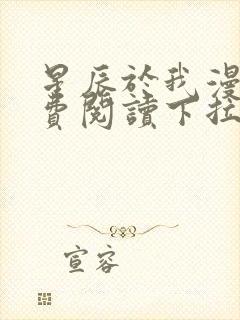 星辰於我漫
費閱讀下拉
宣容